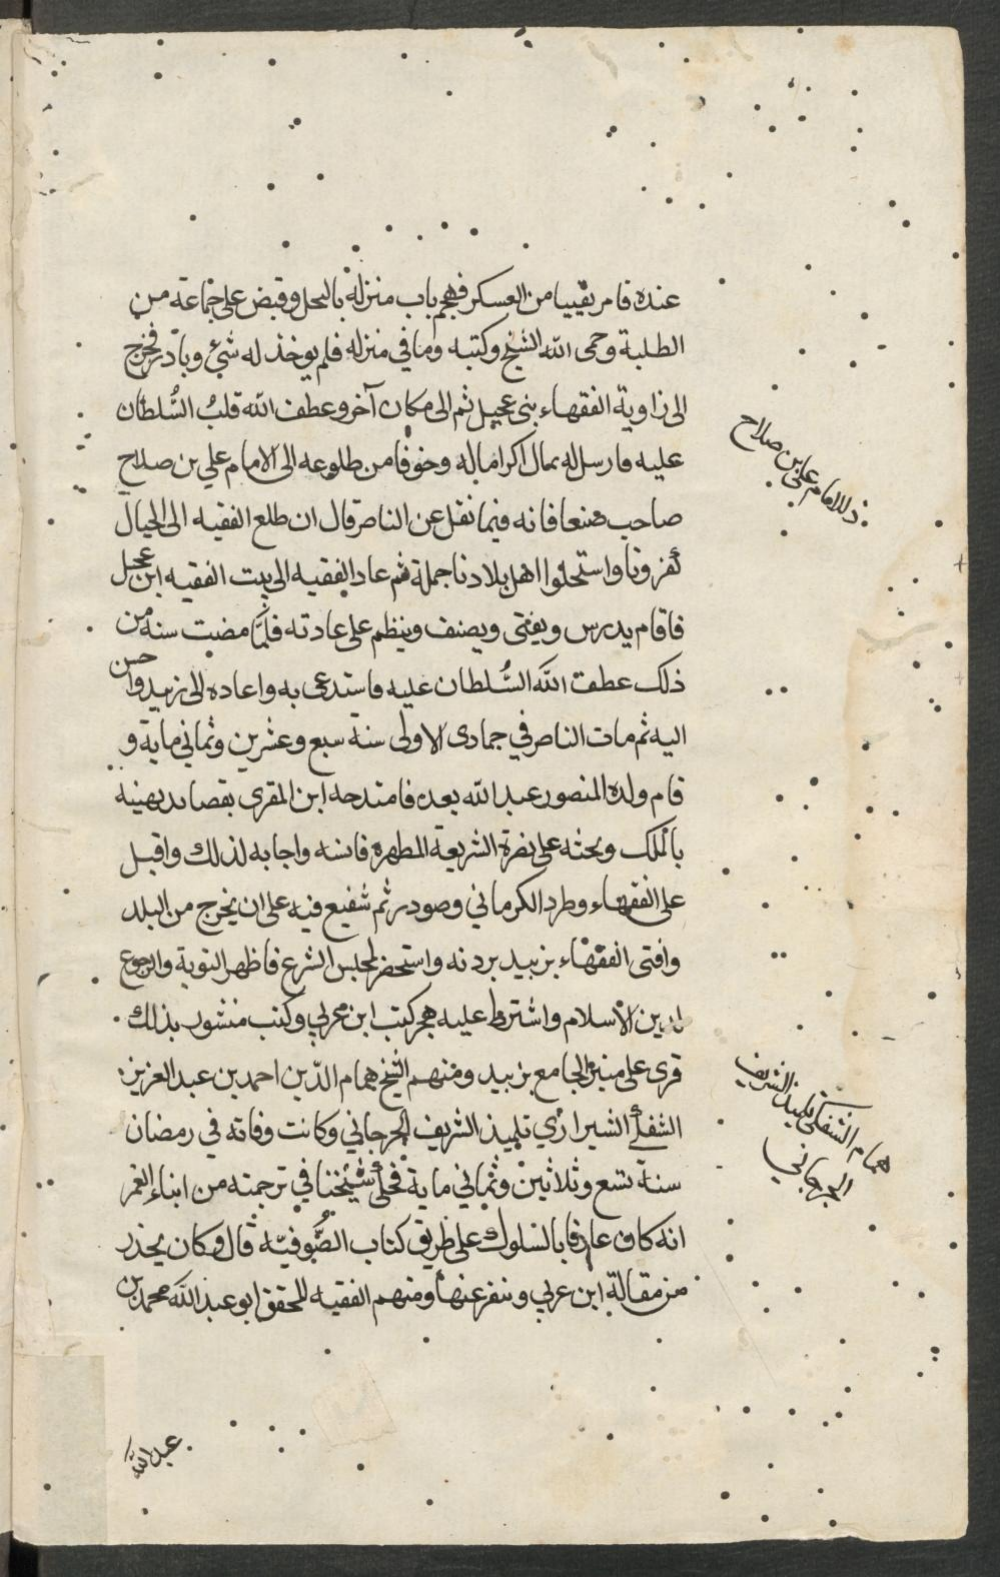 عنده فامر نقيبا من العسكر فهجم باب منزله بالنحل وقبض على جماعة من
الطلبة وحمى الله الشيخ وكتبه وما في منزله فلم يوخذ له شيء وبادر فخرج
الى زاوية الفقهاء بني عجيل ثم الى مكان آخر وعطف الله قلبُ السُّلطان
عليه فارسل له بمال اكراما له وخوفا من طلوعه الى الامام علي بن صلاح
صاحب صنعا فانه فيما نقل عن الناصر قال ان طلع الفقيه الى الجبال
كفرونا واستحلوا اهل بلادنا جملة فثم عاد الفقيه الى بيت الفقيه ابن عجيل
فاقام يدرس ويفتي ويصنف وينظم على عادته فلمَّا مضت سنة من
ذلك عطف الله السُّلطان عليه فاستدعى به واعاده الى زبيد واحسن
اليه ثم مات الناصر في جمادى الاولى سنة سبع وعشرين وثماني ماية و
قام ولده المنصور عبد الله بعده فامتدحه ابن المقري بقصايد يهنيه
بالملك ويحثه على نصرة الشريعة المطهرة واجابه لذلك واقبل
على الفقهاء وطرد الكرماني وصودر ثم شفيع فيه على ان يخرج من البلد
وافتى الفقهاء بزبيد بردته واستحضر لمجلس الشرع فاظهر التوبة والرجوع
لدين الاسلام واشترط عليه هجر كتب ابن عربي وكتب منشور بذلك
قرى على منبر الجامع بزبيد ومنهم الشيخ همام الدّين احمد بن عبد العزيز
الشيرازي تلميذ الشريف الجرجاني وكانت وفاته في رمضان
سنة تسع وثلاثين وثماني ماية فحكى شيخنا في ترجمته من ابناء الغمر
انه كان عارفا بالسلوك على طريق كتاب الصُّوفيّة قال وكان يحذر
من مقالة ابن عربي وينفر عنها ومنهم الفقيه المحقق ابو عبد الله محمد بن
عبد الله
للامام علي بن صلاح
همام الشفكي تلميذ الشريف
الجرجاني